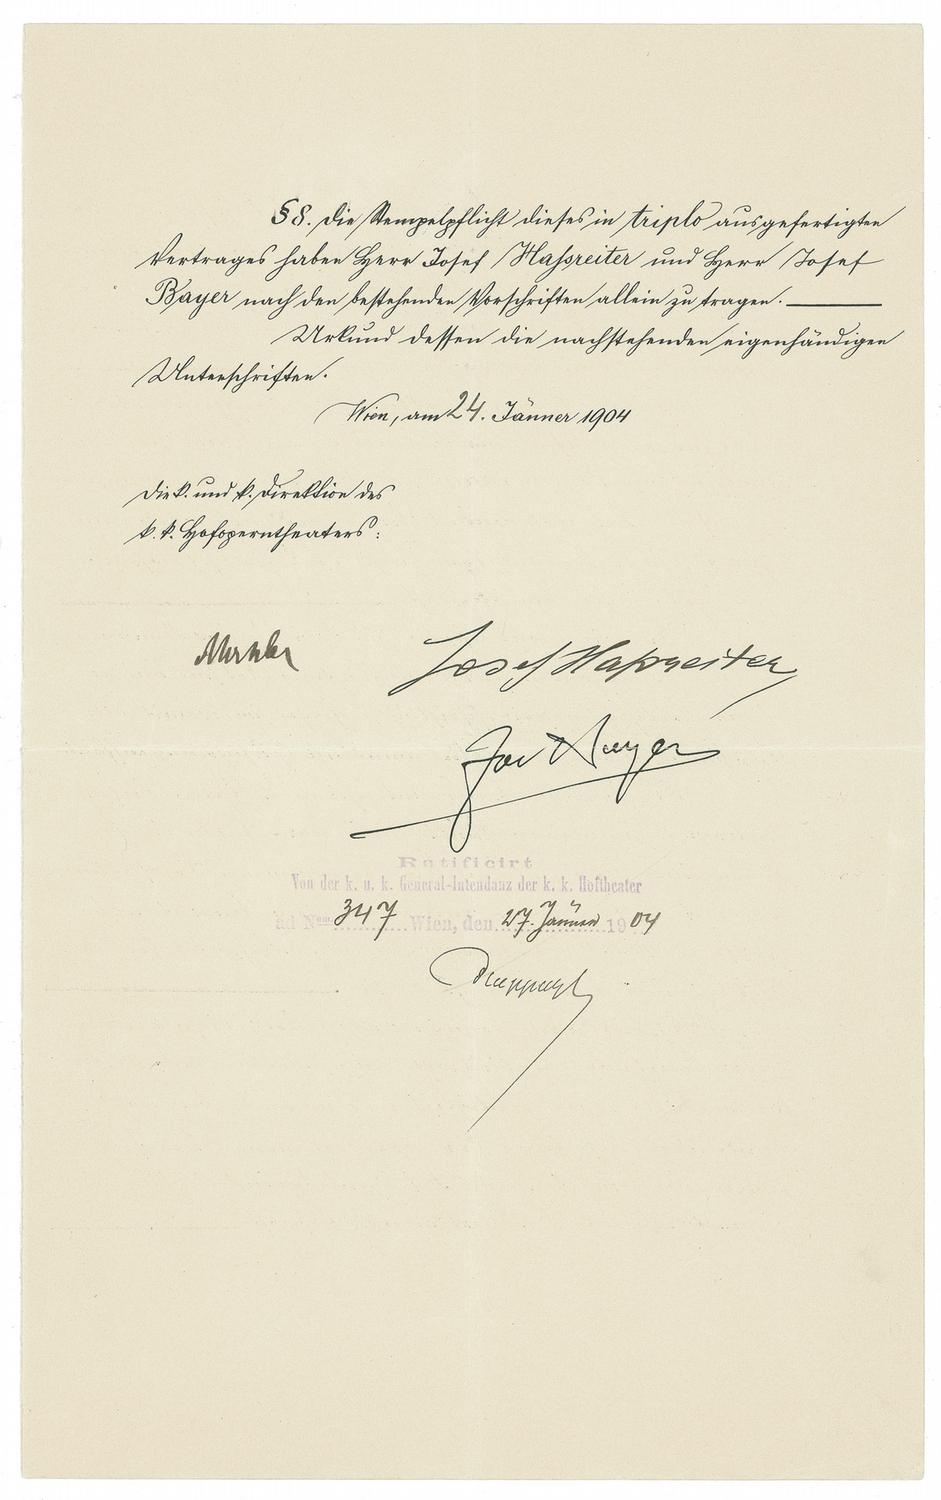 § 8. Die Stempelpflicht dieses in triplo ausgefertigten
Vertrages haben Herr Josef Haßreiter und Herr Josef
Bayer nach den bestehenden Vorschriften allein zu tragen.
Urkund dessen die nachstehenden eigenhändigen
Unterschriften.
Wien, am 24. Jänner 1904
Die k. und k. Direktion des
k. k. Hofoperntheaters:
Mahler
Josef Haßreiter
Jos Bayer
Ratificirt
Von der k. u. k. General-Intendanz der k. k. Hoftheater
ad Nrum 347 Wien, den 27. Jänner 1904